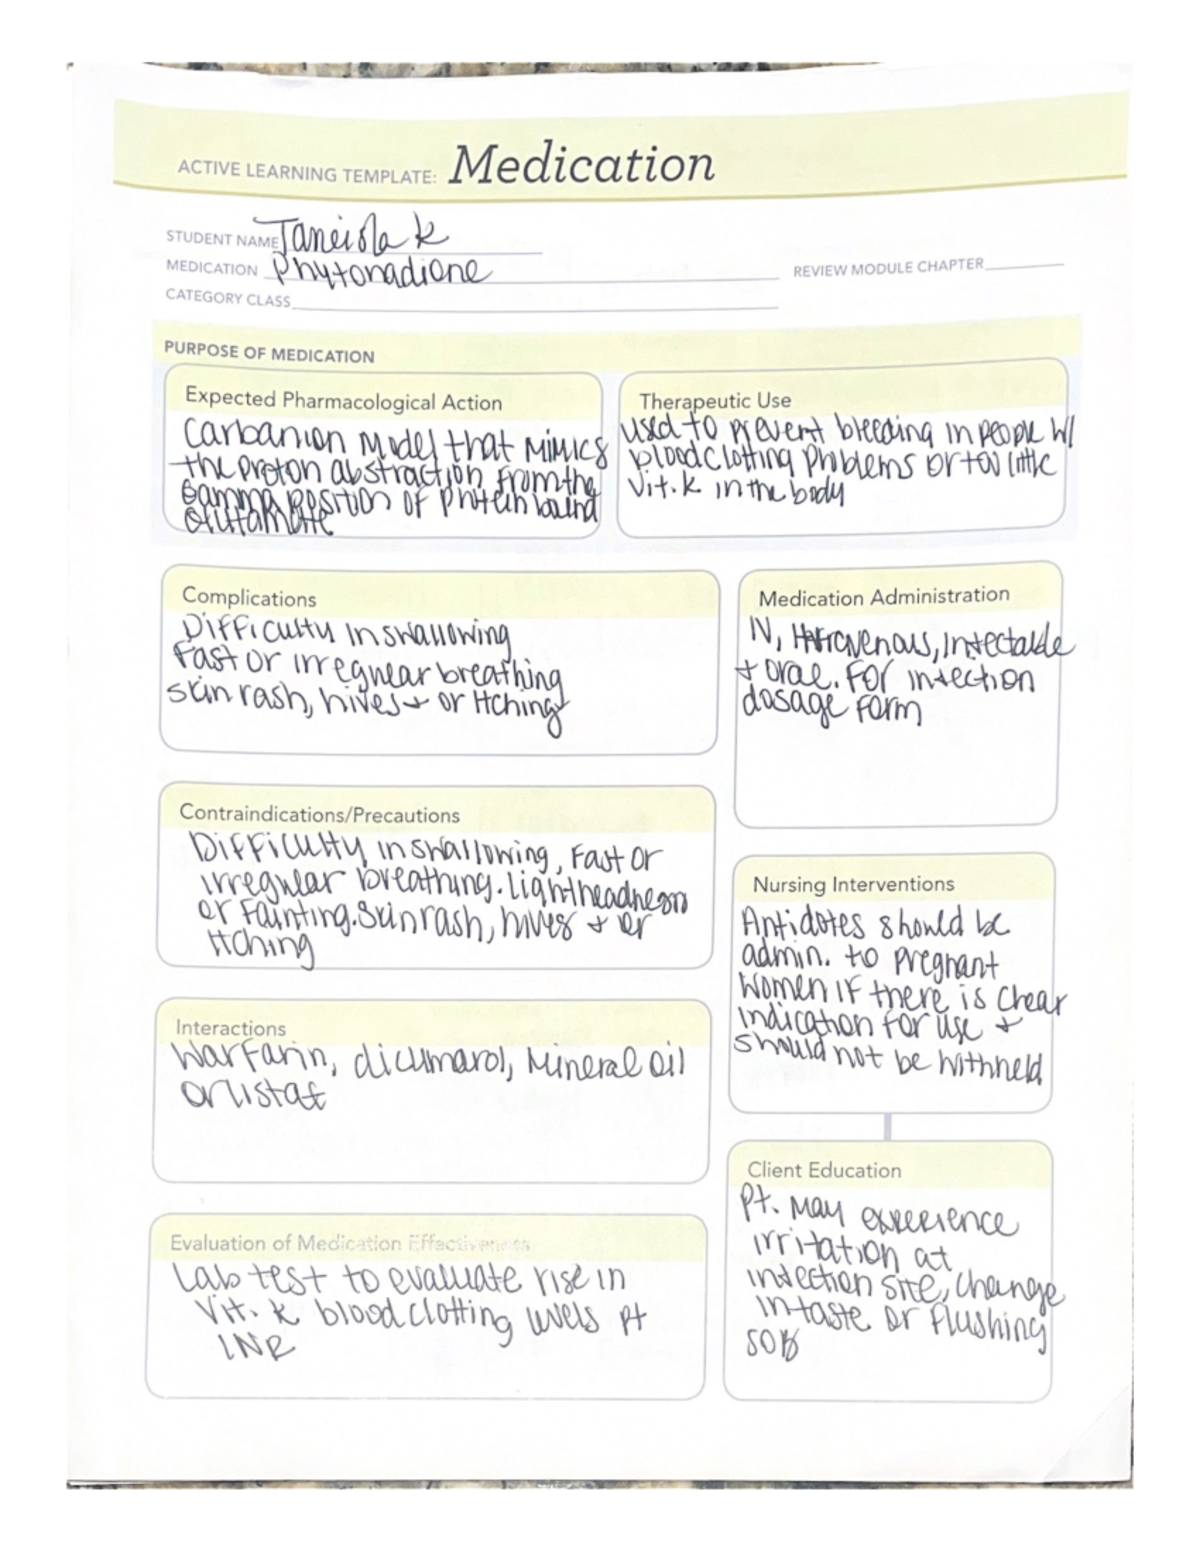 ACTIVE LEARNING TEMPLATE: Medication
STUDENT NAME
MEDICATION Phytonadione
REVIEW MODULE CHAPTER
CATEGORY CLASS
PURPOSE OF MEDICATION
Expected Pharmacological Action
Carbanion Model that Mimics
the proton abstraction from the
gamma position of protein bound
glutamate
Therapeutic Use
used to prevent bleeding in people w/
blood clotting problems or too little
vit. K in the body
Complications
Difficulty in swallowing
Fast or irregular breathing
skin rash, hives + or itching
Medication Administration
IV, Intravenous, Injectable
+ oral. For injection
dosage form
Contraindications/Precautions
Difficulty in swallowing, Fast or
irregular breathing. Lightheadness
or Fainting. Skin rash, hives + or
itching
Nursing Interventions
Antidotes should be
admin. to pregnant
women if there is clear
indication for use +
should not be withheld
Interactions
Warfarin, dicumarol, Mineral oil
orlistat
Client Education
Pt. May experience
irritation at
injection site, change
in taste or Flushing
SOB
Evaluation of Medication Effectiveness
Lab test to evaluate rise in
Vit. K blood clotting levels Pt
INR